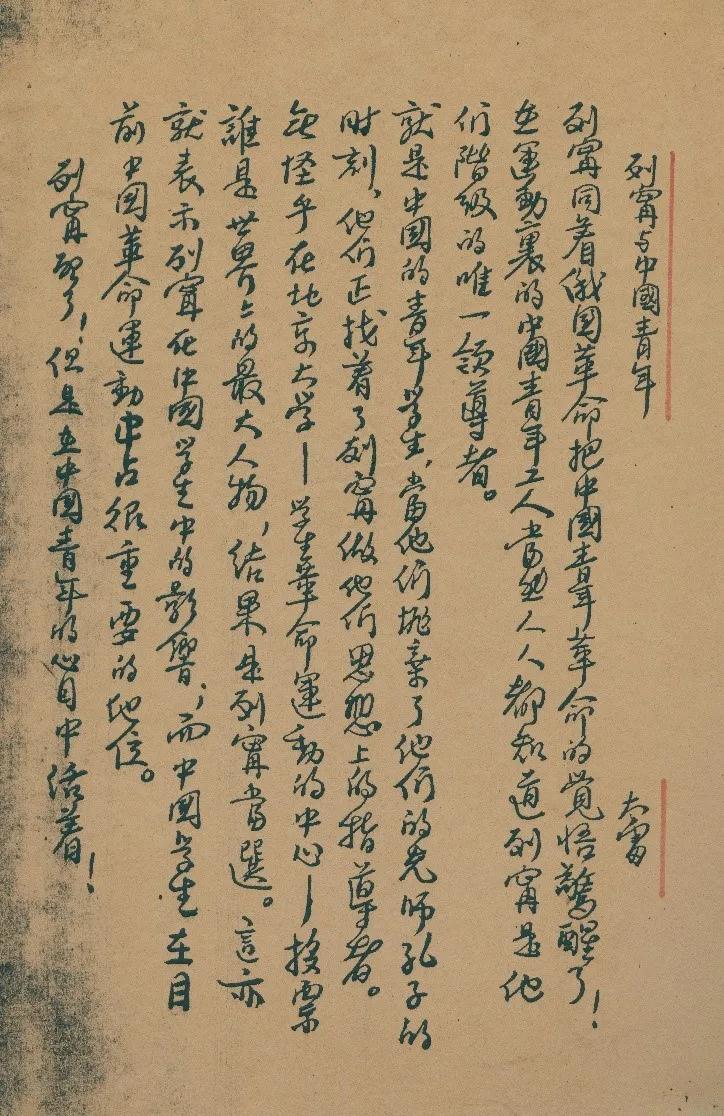 列寗与中國青年
大雷
列寗同着俄国革命把中國青年革命的覚悟驚醒了！
在運動裏的中國青年工人当然人人都知道列寗是他
们階级的唯一领導者。
就是中國的青年学生，当他们抛棄了他们的先师孔子的
时刻，他们正找着了列寗做他们思想上的指導者。
無怪乎在北京大学—学生革命運動的中心—投票
誰是世界上的最大人物，结果是列寗当選。這亦
就表示列寗在中國学生中的影響，而中國学生在目
前中國革命運動中占很重要的地位。
列寗死了！但是在中國青年的心目中活着！